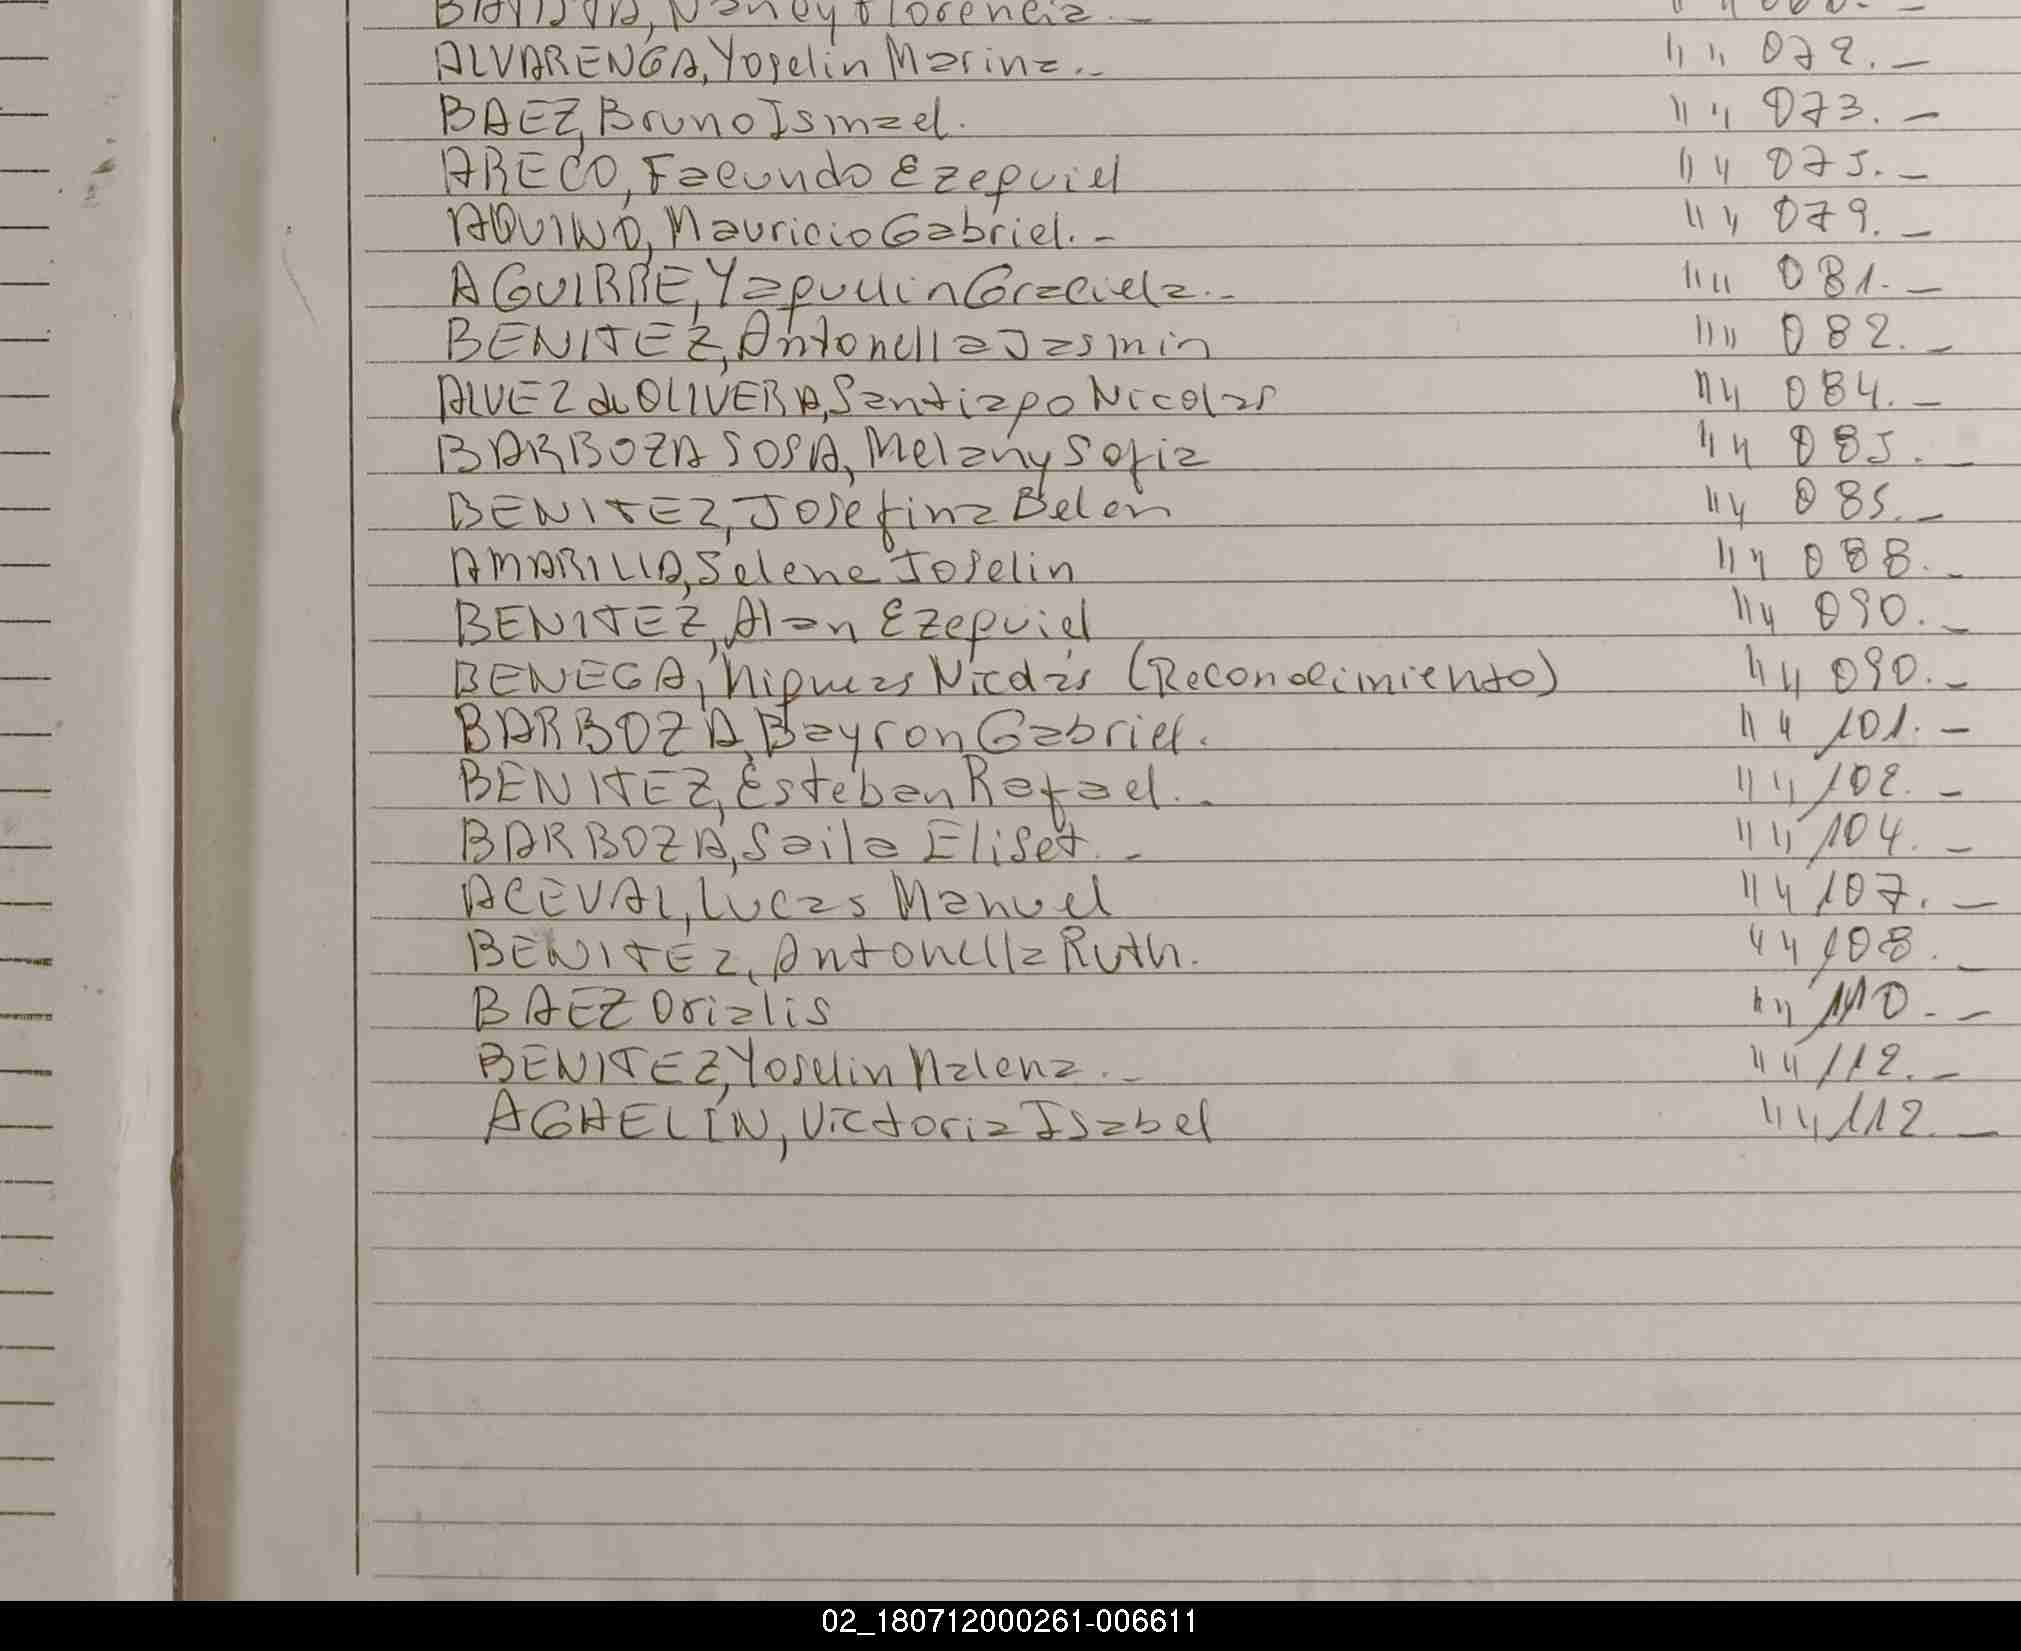 Nancy Florencia.-
ALVARENGA, Yoselin Marina.- " " 072.-
BAEZ, Bruno Ismael. " " 073.-
ARECO, Facundo Ezequiel " " 075.-
AQUINO, Mauricio Gabriel.- " " 079.-
AGUIRRE, Yaquilin Graciela.- " " 081.-
BENITEZ, Antonella Jasmin " " 082.-
ALVEZ de OLIVERA, Santiago Nicolas " " 084.-
BARBOZA SOSA, Melany Sofia " " 085.-
BENITEZ, Josefina Belen " " 085.-
AMARILLA, Selene Joselin " " 088.-
BENITEZ, Alan Ezequiel " " 090.-
BENEGA, Nicolás (Reconocimiento) " " 090.-
BARBOZA, Bayron Gabriel. " " 101.-
BENITEZ, Esteban Rafael.- " " 102.-
BARBOZA, Saila Eliset.- " " 104.-
ACEVAL, Lucas Manuel " " 107.-
BENITEZ, Antonella Ruth. " " 108.-
BAEZ Orialis " " 110.-
BENITEZ, Yoselin Malena.- " " 112.-
AGHELIN, Victoria Isabel " " 112.-
02_180712000261-006611